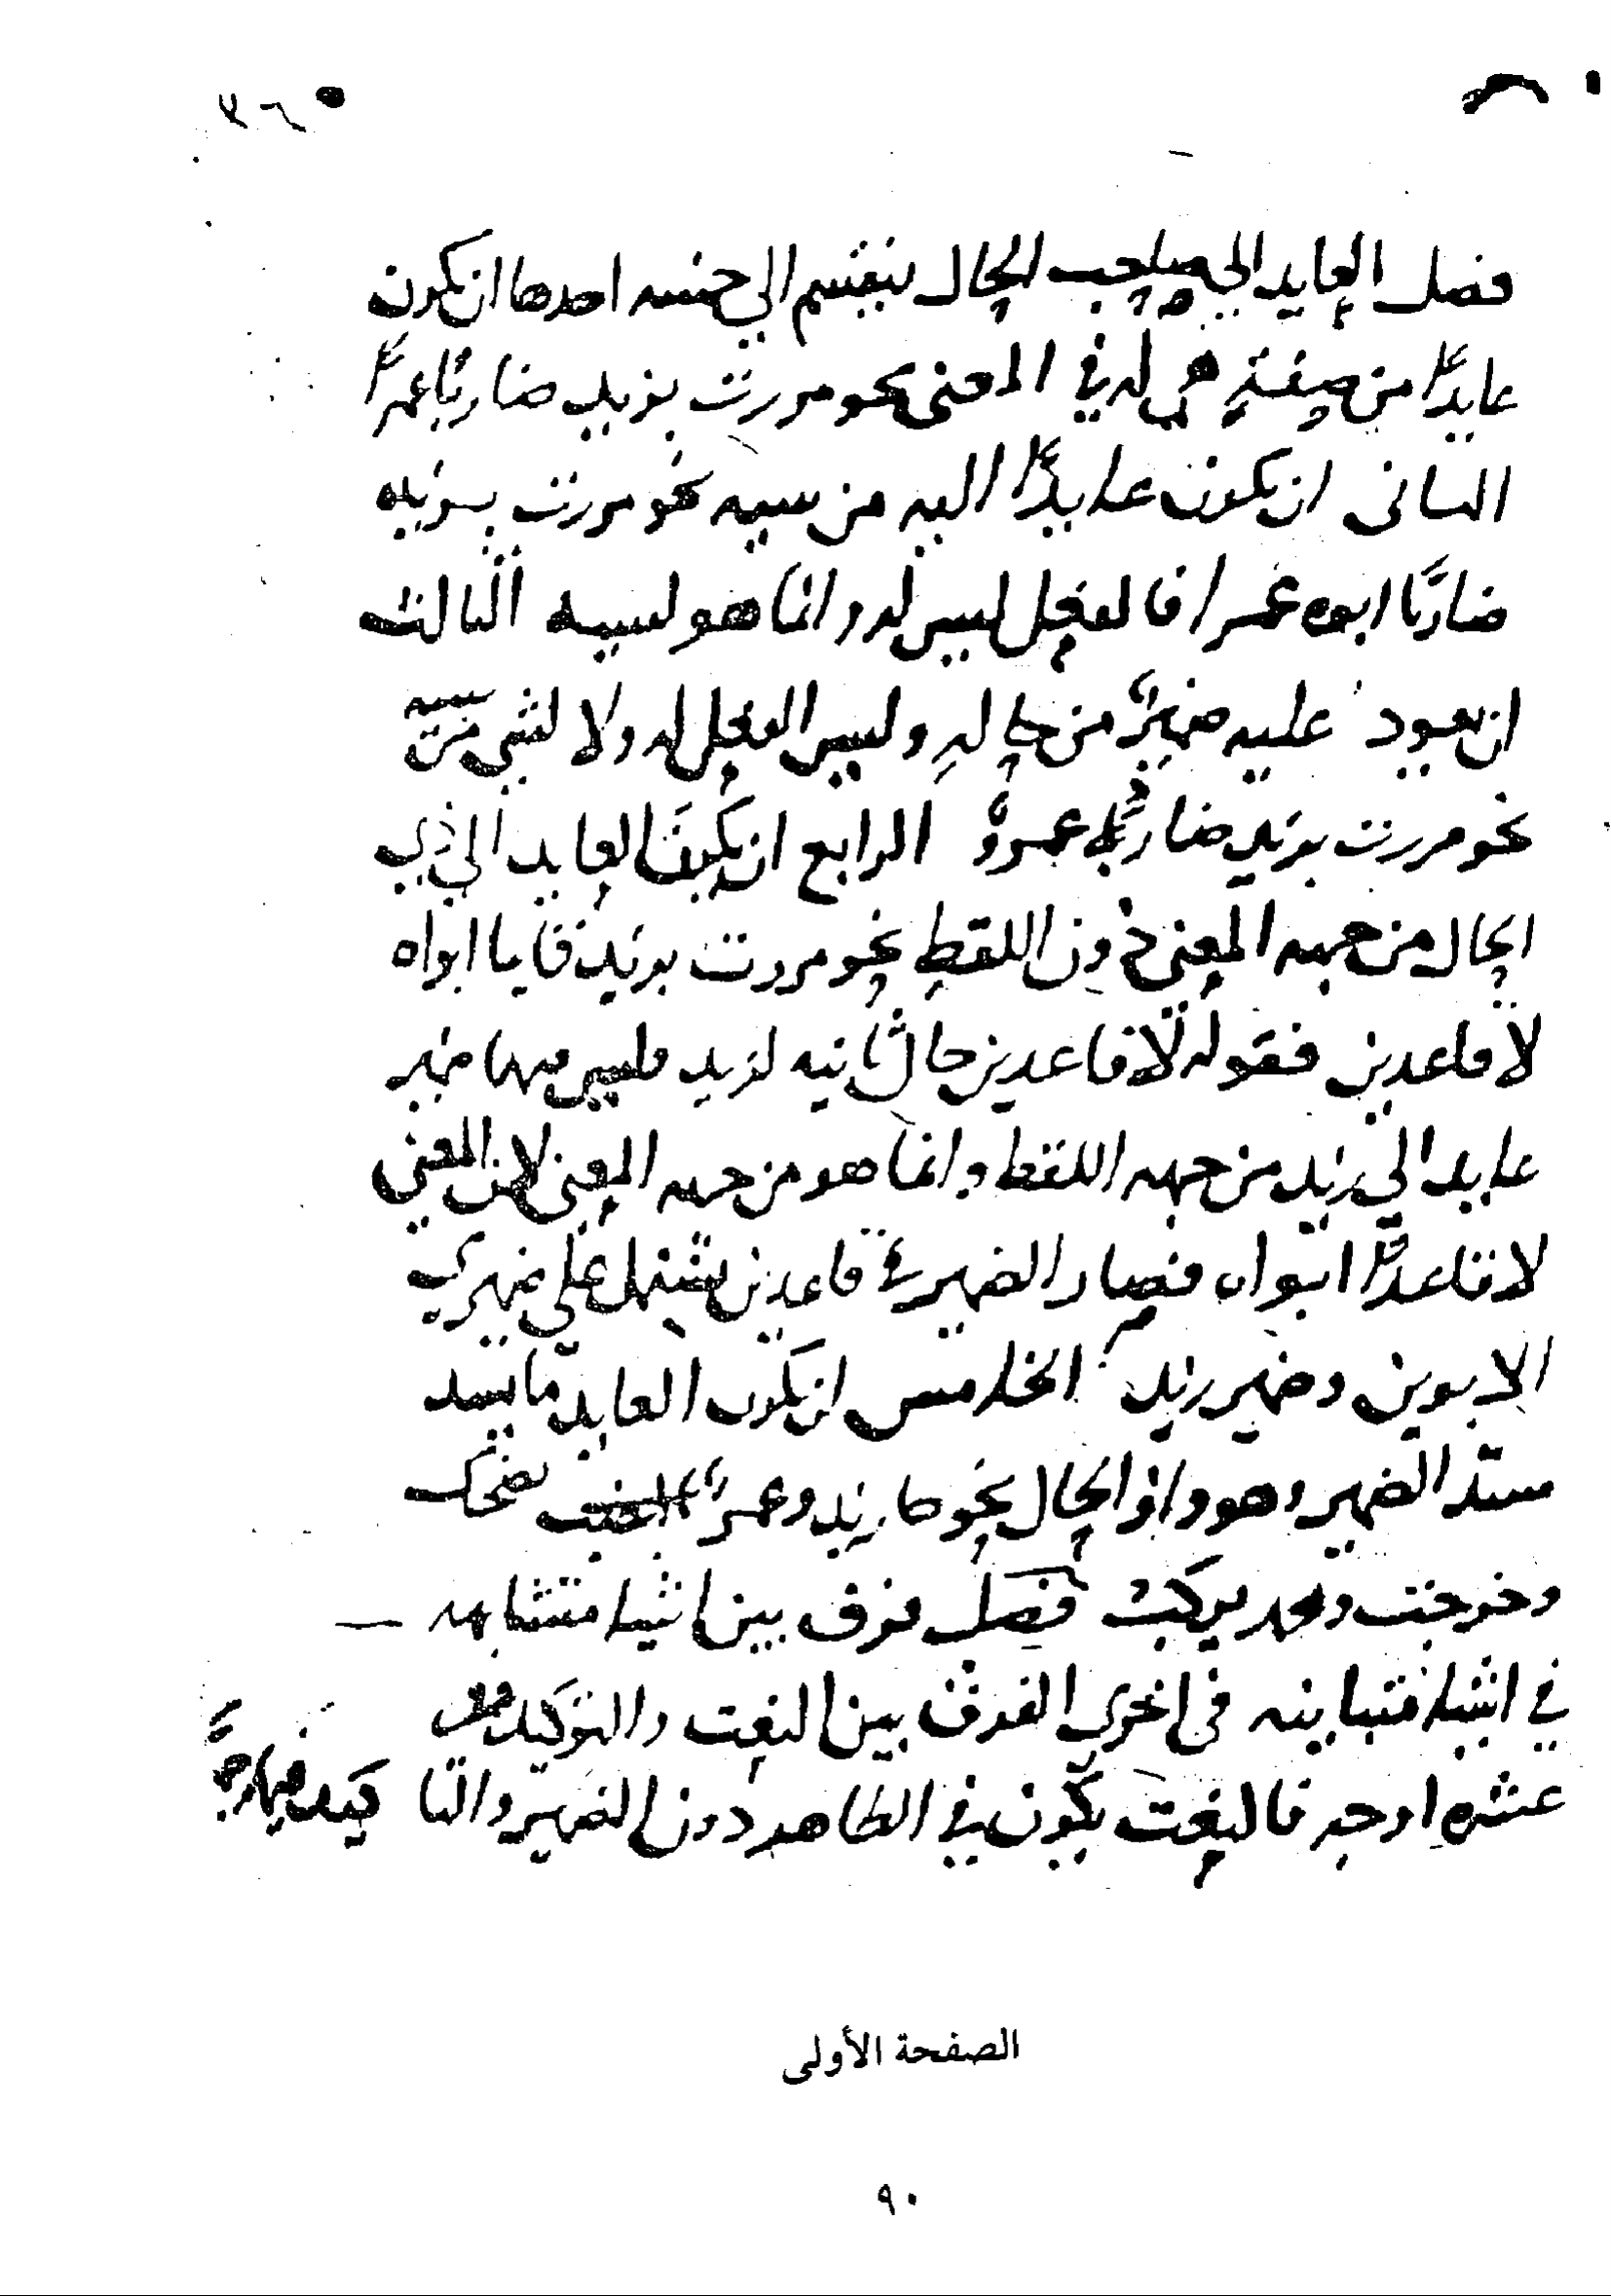 فصل العايد الي صاحب الحال ينقسم الي خمسه احدها ان يكون
عايدًا من صفةٍ هي له في المعنى نحو مررت بزيد ضاربًا عمرًا
الثاني ان يكون عايدًا اليه من سببه نحو مررت بزيد
ضاربًا ابوه عمرا فالفعل ليس له وانما هو لسببه الثالث
ان يعود عليه ضميرٌ من حالهِ وليس الفعل له ولا لشي من سببه
نحو مررت بزيد ضاربُه عمروٌ الرابع ان يكونَ العايد الي ذي
الحال من جهه المعنى دون اللفظ نحو مررت بزيد قايما ابواه
لا قاعدين فقوله لا قاعدين حال ثانيه لزيد وليس فيها ضمير
عايد الي زيد من جهه اللفظ وانما هو من جهه المعنى لان المعنى
لا قاعدًا ابواه فصار الضمير في قاعدين يشتمل على ضميري
الابوين وضمير زيد الخامس ان يكون العايد ما يسد
مسدّ الضمير وهو واو الحال نحو جا زيد وعمرٌو يضحك
وخرجت ومحمد يركب فصل فرق بين اشيا متشابهه
في اشيا متباينه في اخرى الفرق بين النعت والتوكيد من
عشره اوجه فالنعت يكون في الظاهر دون الضمير والتا كيد فيهما
الصفحة الأولى
٩٠